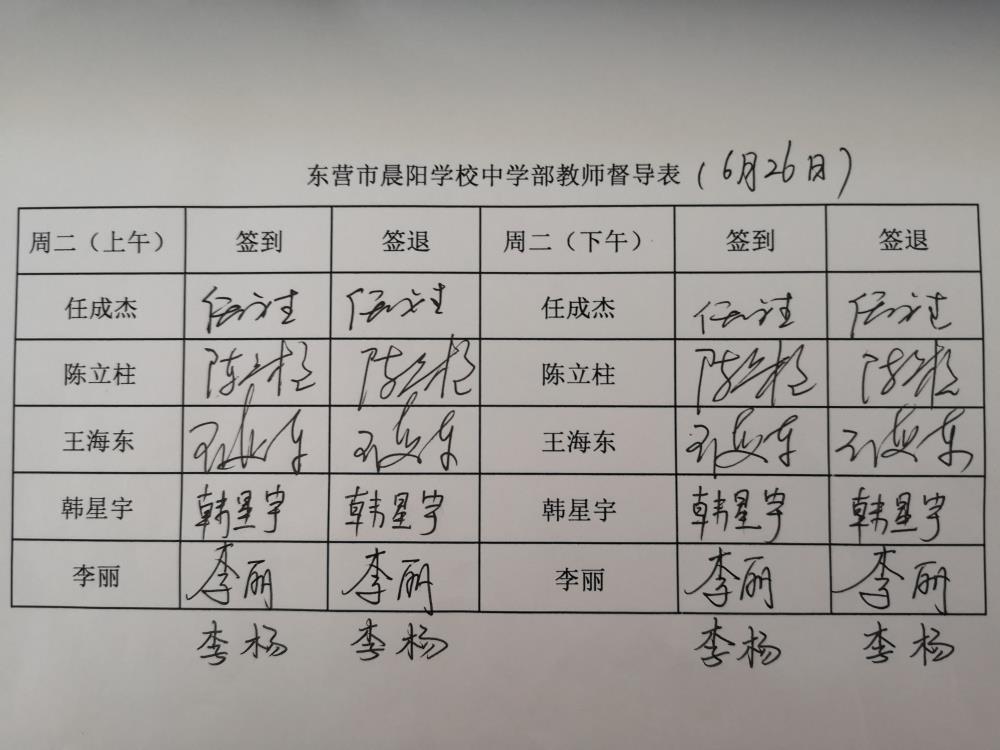 东营市晨阳学校中学部教师督导表（6月26日）
周二（上午） 签到 签退 周二（下午） 签到 签退
任成杰 任成杰 任成杰 任成杰 任成杰 任成杰
陈立柱 陈立柱 陈立柱 陈立柱 陈立柱 陈立柱
王海东 王海东 王海东 王海东 王海东 王海东
韩星宇 韩星宇 韩星宇 韩星宇 韩星宇 韩星宇
李丽 李丽 李丽 李丽 李丽 李丽
李杨 李杨 李杨 李杨